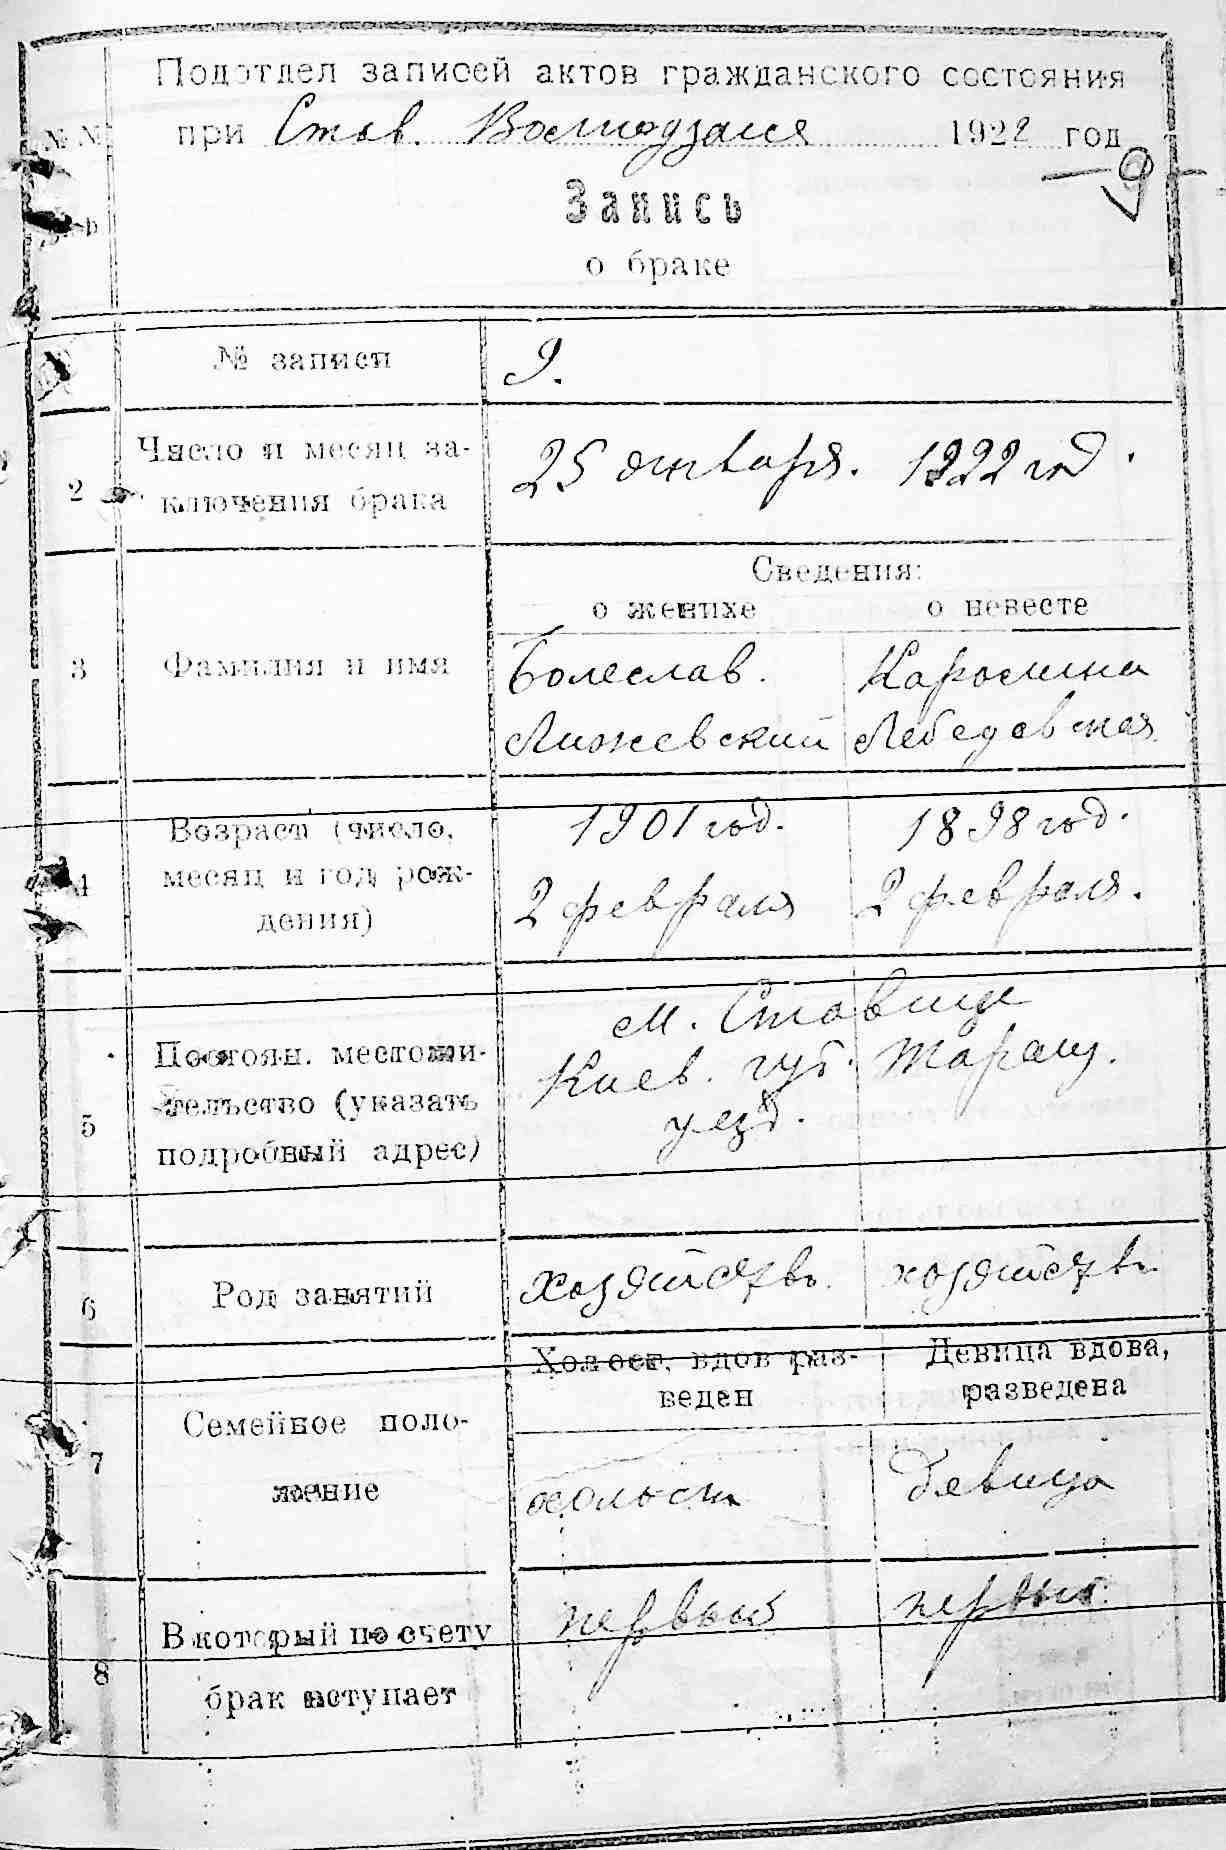 Подотдел записей актов гражданского состояния
№№ при Став. 1922 год
— 9 —
Запись
о браке
№ записи 9.
2 Число и месяц за- 25 января. 1922 год.
ключения брака
Сведения:
о женихе о невесте
3 Фамилия и имя Болеслав. Каролина
Лижевский Лебедовская
Возраст (число, 1901 год. 1898 год.
4 месяц и год рож- 2 февраля 2 февраля.
дения)
м. Ставище
Постоян. местожи- Киев. губ. Таращ.
5 тельство (указать уезд.
подробный адрес)
6 Род занятий хозяйство. хозяйство
Холост, вдов раз- Девица вдова,
веден разведена
7 Семейное поло-
жение холост девица
В который по счету первый первый.
8 брак вступает